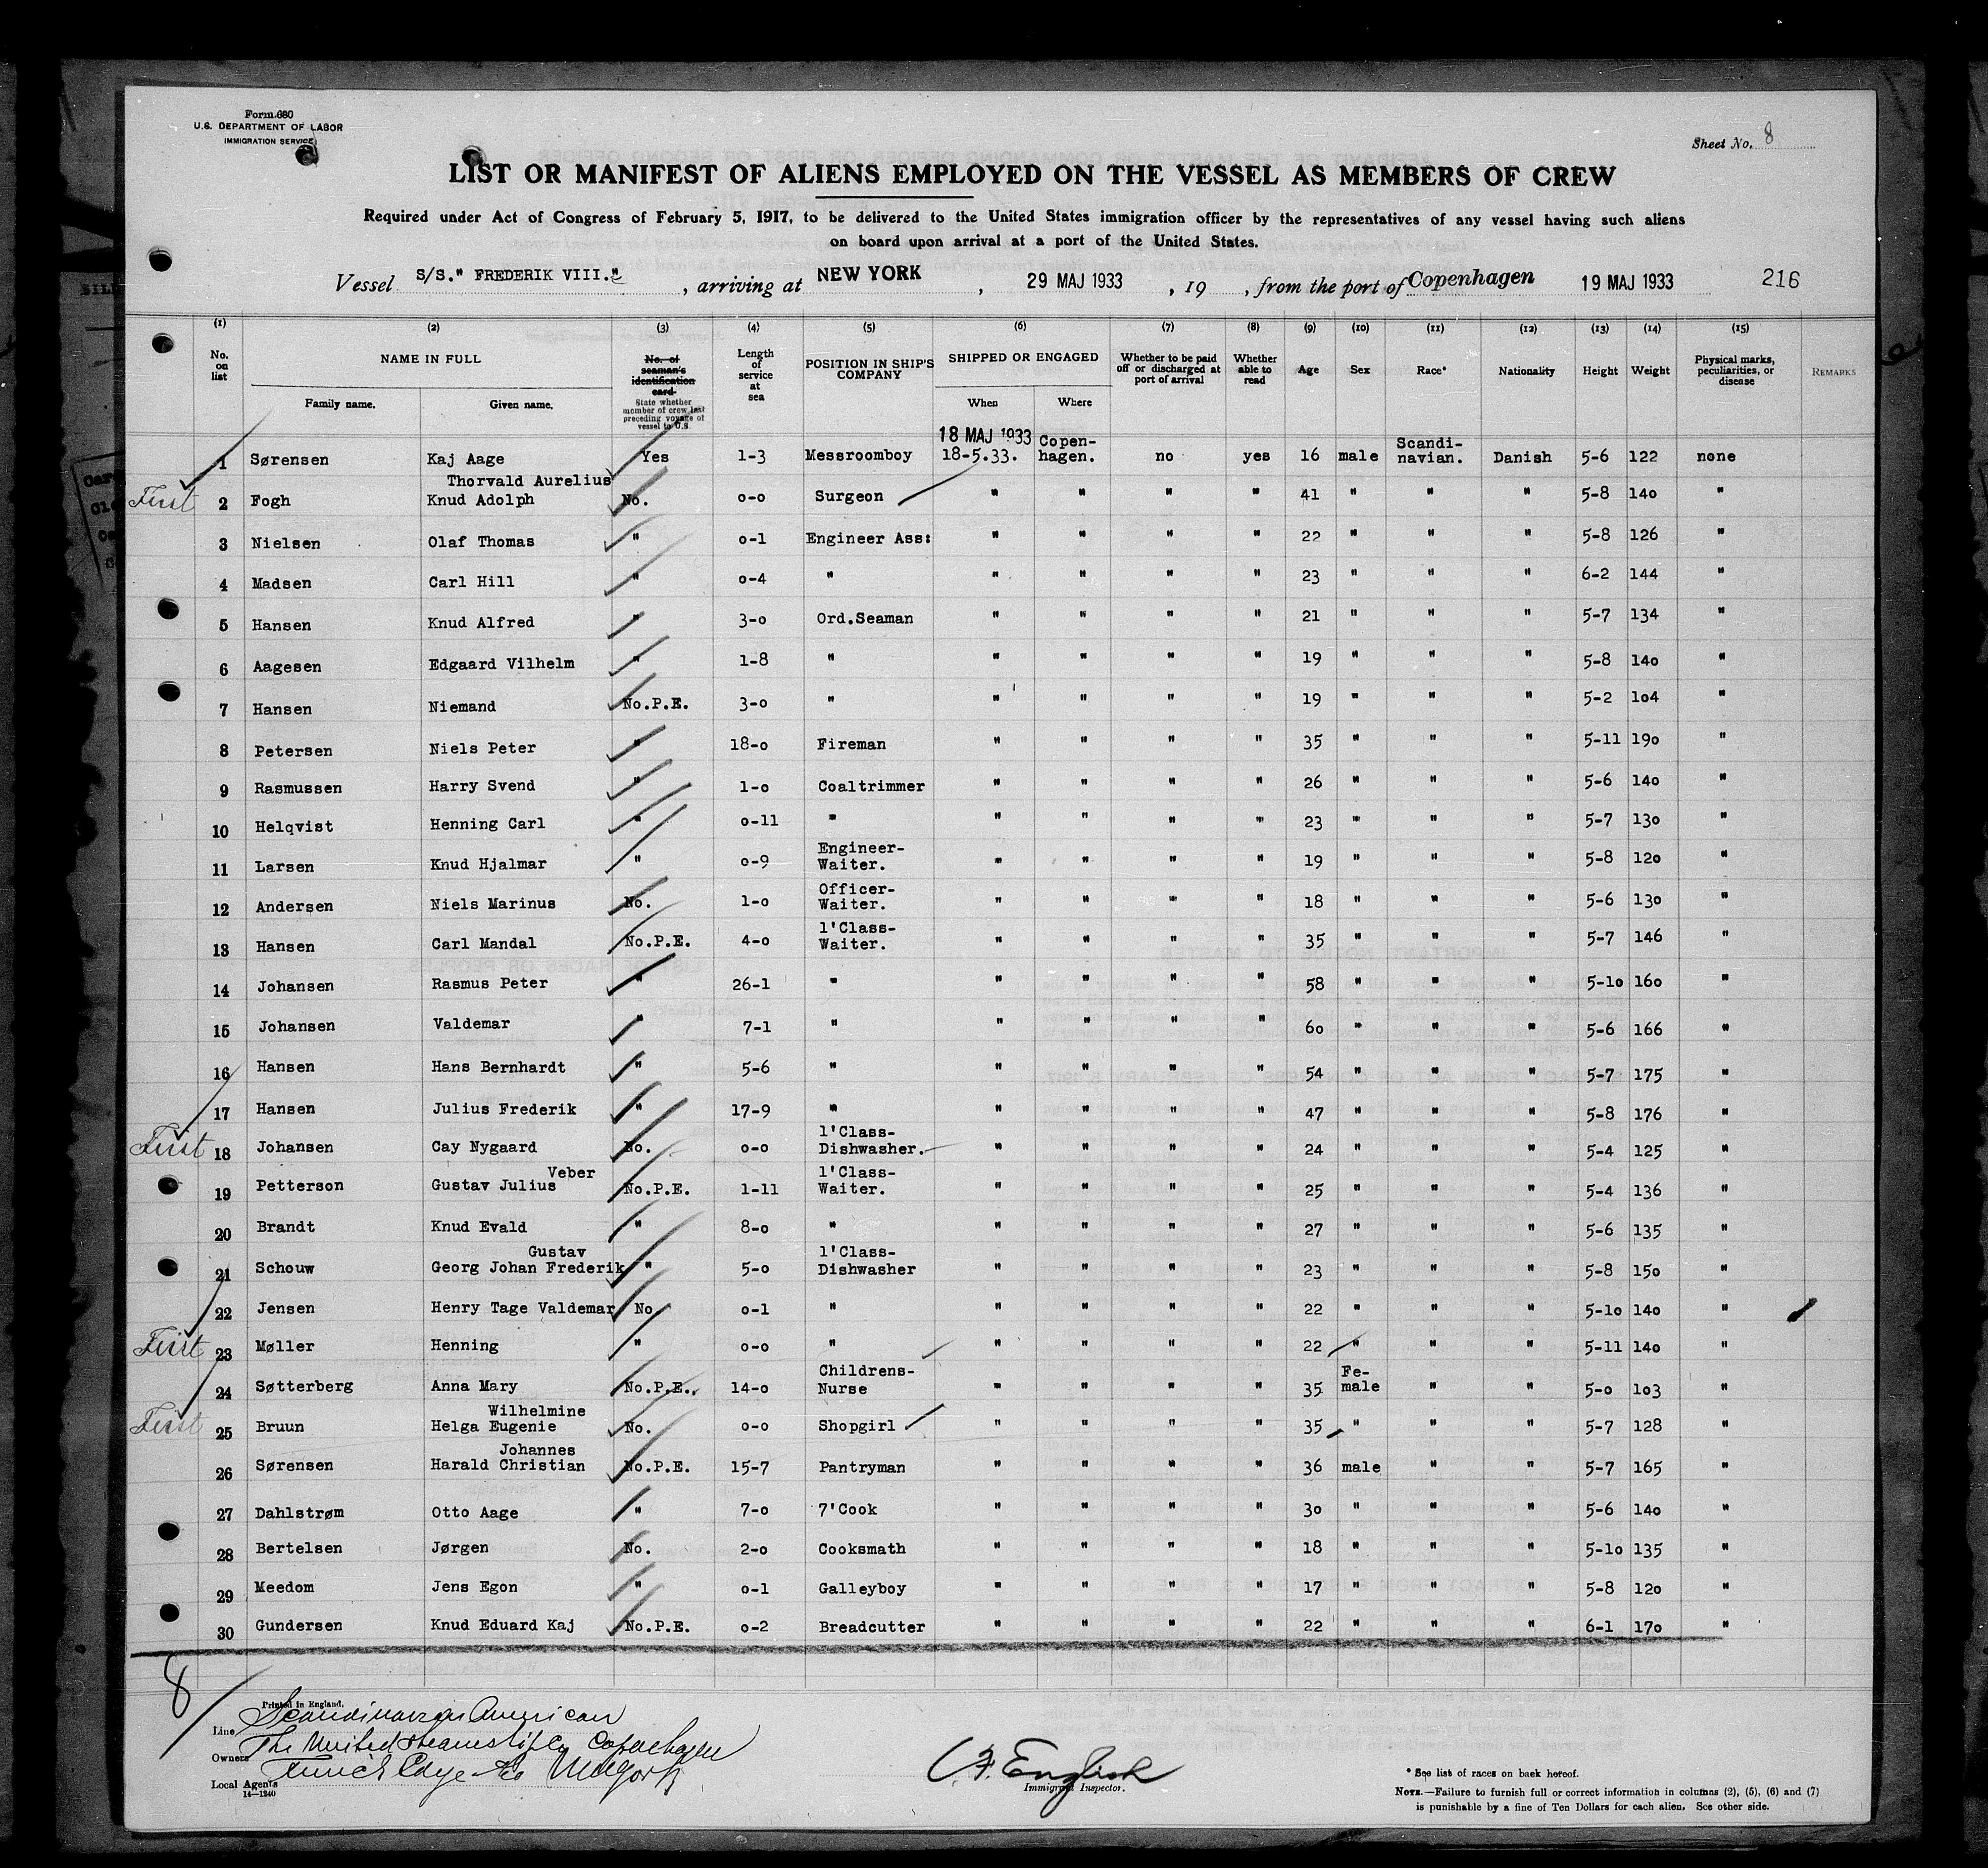 Form 680
U.S. DEPARTMENT OF LABOR
IMMIGRATION SERVICE
Sheet No. 8
LIST OR MANIFEST OF ALIENS EMPLOYED ON THE VESSEL AS MEMBERS OF CREW
Required under Act of Congress of February 5, 1917, to be delivered to the United States immigration officer by the representatives of any vessel having such aliens
on board upon arrival at a port of the United States.
Vessel S/S." FREDERIK VIII.", arriving at NEW YORK, 29 MAJ 1933, 19 , from the port of Copenhagen 19 MAJ 1933 216
(1) (2) (3) (4) (5) (6) (7) (8) (9) (10) (11) (12) (13) (14) (15)
No. on list NAME IN FULL Family name. Given name. No. of seaman's identification card State whether member of crew last preceding voyage of vessel to U.S. Length of service at sea POSITION IN SHIP'S COMPANY SHIPPED OR ENGAGED When Where Whether to be paid off or discharged at port of arrival Whether able to read Age Sex Race* Nationality Height Weight Physical marks, peculiarities, or disease REMARKS
18 MAJ 1933
1 Sørensen Kaj Aage Yes 1-3 Messroomboy 18-5.33. Copen-hagen. no yes 16 male Scandi-navian. Danish 5-6 122 none
First 2 Fogh Thorvald Aurelius Knud Adolph No. 0-0 Surgeon " " " " 41 " " " 5-8 140 "
3 Nielsen Olaf Thomas " 0-1 Engineer Ass: " " " " 22 " " " 5-8 126 "
4 Madsen Carl Hill " 0-4 " " " " " 23 " " " 6-2 144 "
5 Hansen Knud Alfred " 3-0 Ord.Seaman " " " " 21 " " " 5-7 134 "
6 Aagesen Edgaard Vilhelm " 1-8 " " " " " 19 " " " 5-8 140 "
7 Hansen Niemand No.P.E. 3-0 " " " " " 19 " " " 5-2 104 "
8 Petersen Niels Peter " 18-0 Fireman " " " " 35 " " " 5-11 190 "
9 Rasmussen Harry Svend " 1-0 Coaltrimmer " " " " 26 " " " 5-6 140 "
10 Helqvist Henning Carl " 0-11 " " " " " 23 " " " 5-7 130 "
11 Larsen Knud Hjalmar " 0-9 Engineer-Waiter. " " " " 19 " " " 5-8 120 "
12 Andersen Niels Marinus No. 1-0 Officer-Waiter. " " " " 18 " " " 5-6 130 "
13 Hansen Carl Mandal No.P.E. 4-0 1'Class-Waiter. " " " " 35 " " " 5-7 146 "
14 Johansen Rasmus Peter " 26-1 " " " " " 58 " " " 5-10 160 "
15 Johansen Valdemar " 7-1 " " " " " 60 " " " 5-6 166 "
16 Hansen Hans Bernhardt " 5-6 " " " " " 54 " " " 5-7 175 "
17 Hansen Julius Frederik " 17-9 " " " " " 47 " " " 5-8 176 "
First 18 Johansen Cay Nygaard No. 0-0 1'Class-Dishwasher. " " " " 24 " " " 5-4 125 "
19 Petterson Veber Gustav Julius No.P.E. 1-11 1'Class-Waiter. " " " " 25 " " " 5-4 136 "
20 Brandt Knud Evald " 8-0 " " " " " 27 " " " 5-6 135 "
21 Schouw Gustav Georg Johan Frederik " 5-0 1'Class-Dishwasher " " " " 23 " " " 5-8 150 "
22 Jensen Henry Tage Valdemar No 0-1 " " " " " 22 " " " 5-10 140 "
First 23 Møller Henning " 0-0 " " " " " 22 " " " 5-11 140 "
24 Søtterberg Anna Mary No.P.E. 14-0 Childrens-Nurse " " " " 35 Fe-male " " 5-0 103 "
First 25 Bruun Wilhelmine Helga Eugenie No. 0-0 Shopgirl " " " " 35 " " " 5-7 128 "
26 Sørensen Johannes Harald Christian No.P.E. 15-7 Pantryman " " " " 36 male " " 5-7 165 "
27 Dahlstrøm Otto Aage " 7-0 7'Cook " " " " 30 " " " 5-6 140 "
28 Bertelsen Jørgen No. 2-0 Cooksmath " " " " 18 " " " 5-10 135 "
29 Meedom Jens Egon " 0-1 Galleyboy " " " " 17 " " " 5-8 120 "
30 Gundersen Knud Eduard Kaj No.P.E. 0-2 Breadcutter " " " " 22 " " " 6-1 170 "
8
Printed in England.
Line Scandinavian American
Owners The United Steamship Co Copenhagen
Local Agents
14—1240
English
Immigrant Inspector.
* See list of races on back hereof.
NOTE.—Failure to furnish full or correct information in columns (2), (5), (6) and (7)
is punishable by a fine of Ten Dollars for each alien. See other side.